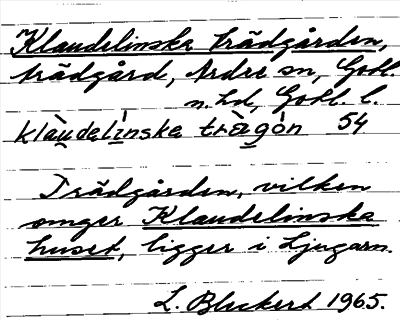 Klaudelinska trädgården,
trädgård, Ardre sn, Gotl.
n. hd, Gotl. l.
klàu̱delì̱nske trä̱̀gó̱n 54
Trädgården, vilken
omger Klaudelinska
huset, ligger i Ljugarn.
L. Bleckert 1965.